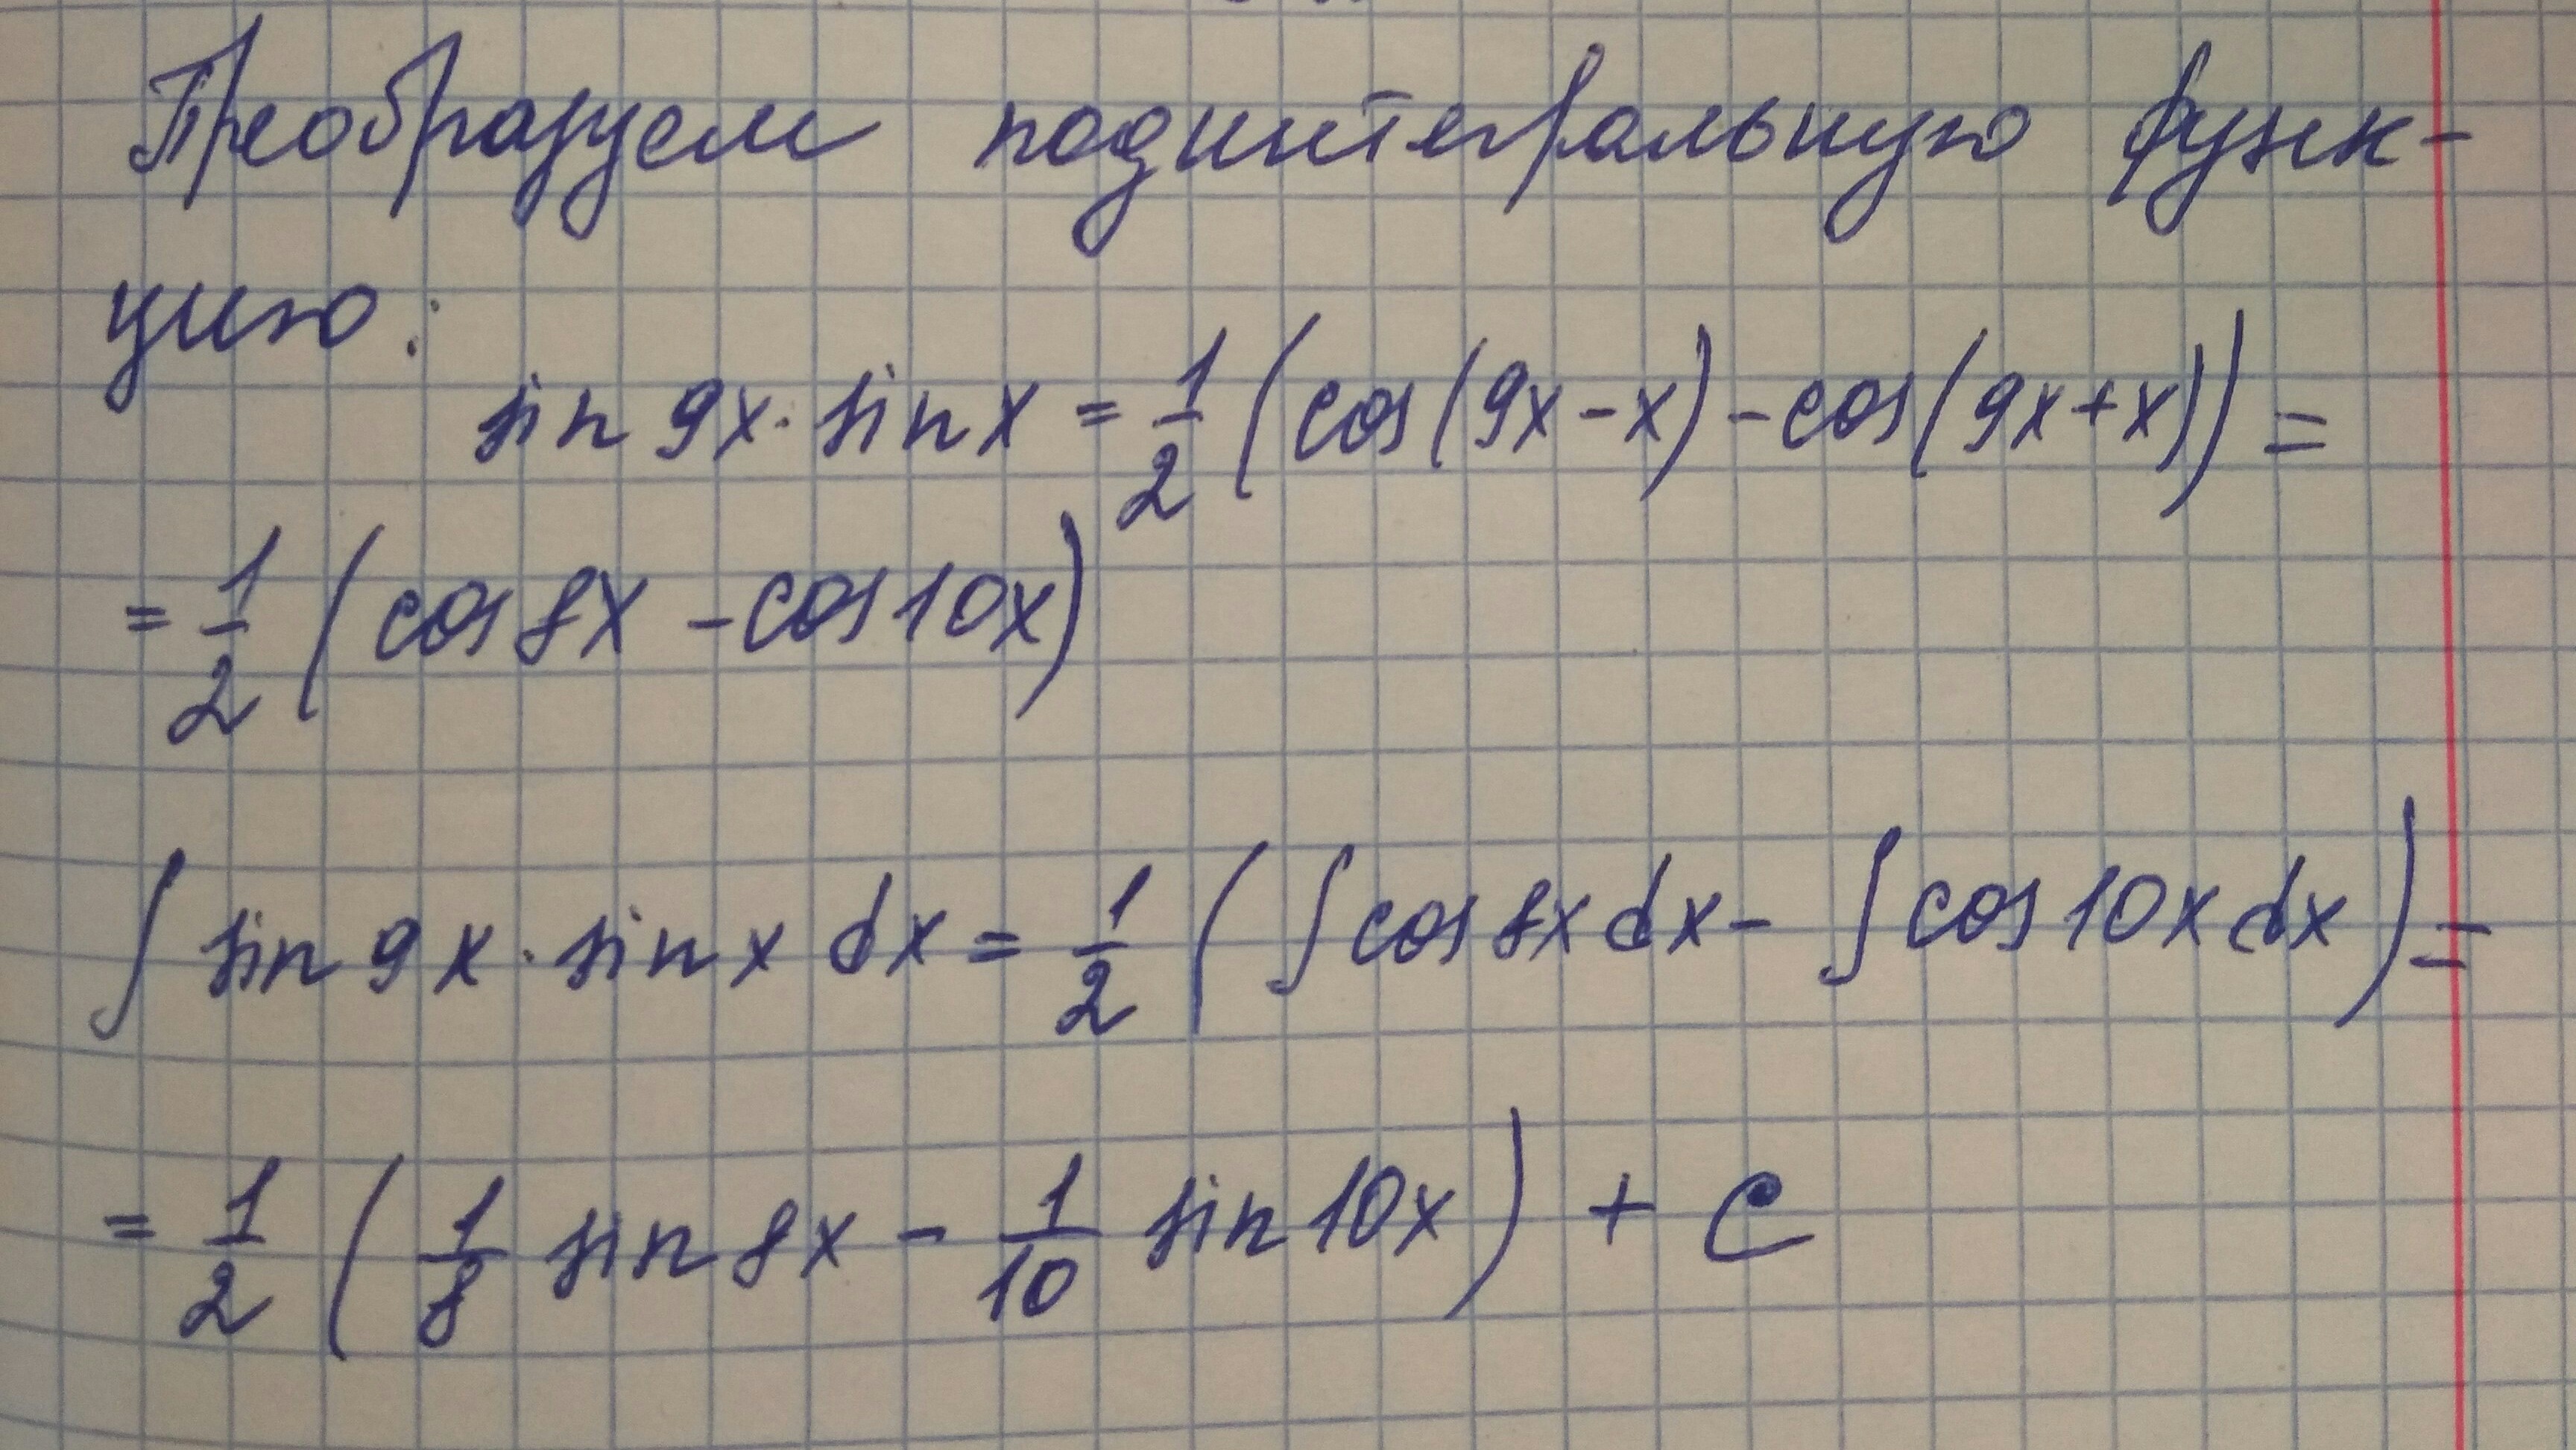 Преобразуем подинтегральную функ-
цию:
sin 9x · sin x = 1/2 (cos(9x - x) - cos(9x + x)) =
= 1/2 (cos 8x - cos 10x)
∫ sin 9x · sin x dx = 1/2 (∫ cos 8x dx - ∫ cos 10x dx) =
= 1/2 (1/8 sin 8x - 1/10 sin 10x) + C